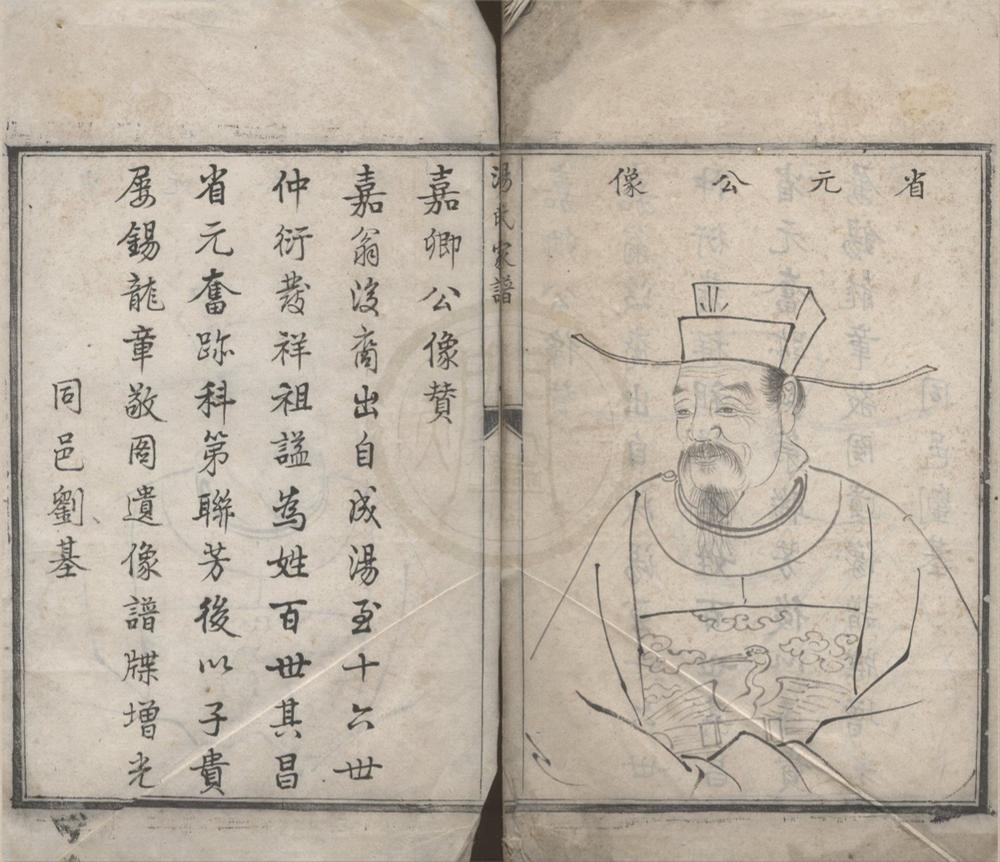 省元公像
湯氏家譜
嘉卿公像贊
嘉翁後裔出自成湯至十六世
仲衍發祥祖諡為姓百世其昌
省元奮跡科第聯芳後以子貴
屡錫龍章敬啚遺像譜牒增光
同邑劉基